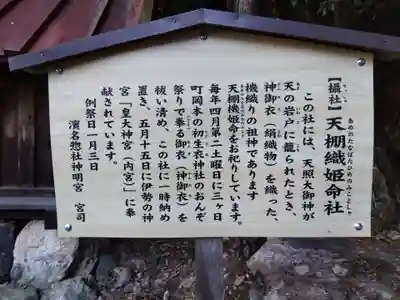 【攝社】天棚織姫命社
せっしゃ あめのたなばたひめのみことしゃ
この社には、天照大御神が
天の岩戸に籠られたとき、
神御衣（絹織物）を織った、
機織りの祖神であります
天棚機姫命をお祀りしています。
毎年四月第二土曜日に三ヶ日
町岡本の初生衣神社のおんぞ
祭りで奉る御衣（神御衣）を
祓い清め、この社に一時納め
置き、五月十五日に伊勢の神
宮「皇大神宮（内宮）」に奉
献されています。
例祭日一月三日
濱名惣社神明宮　宮司